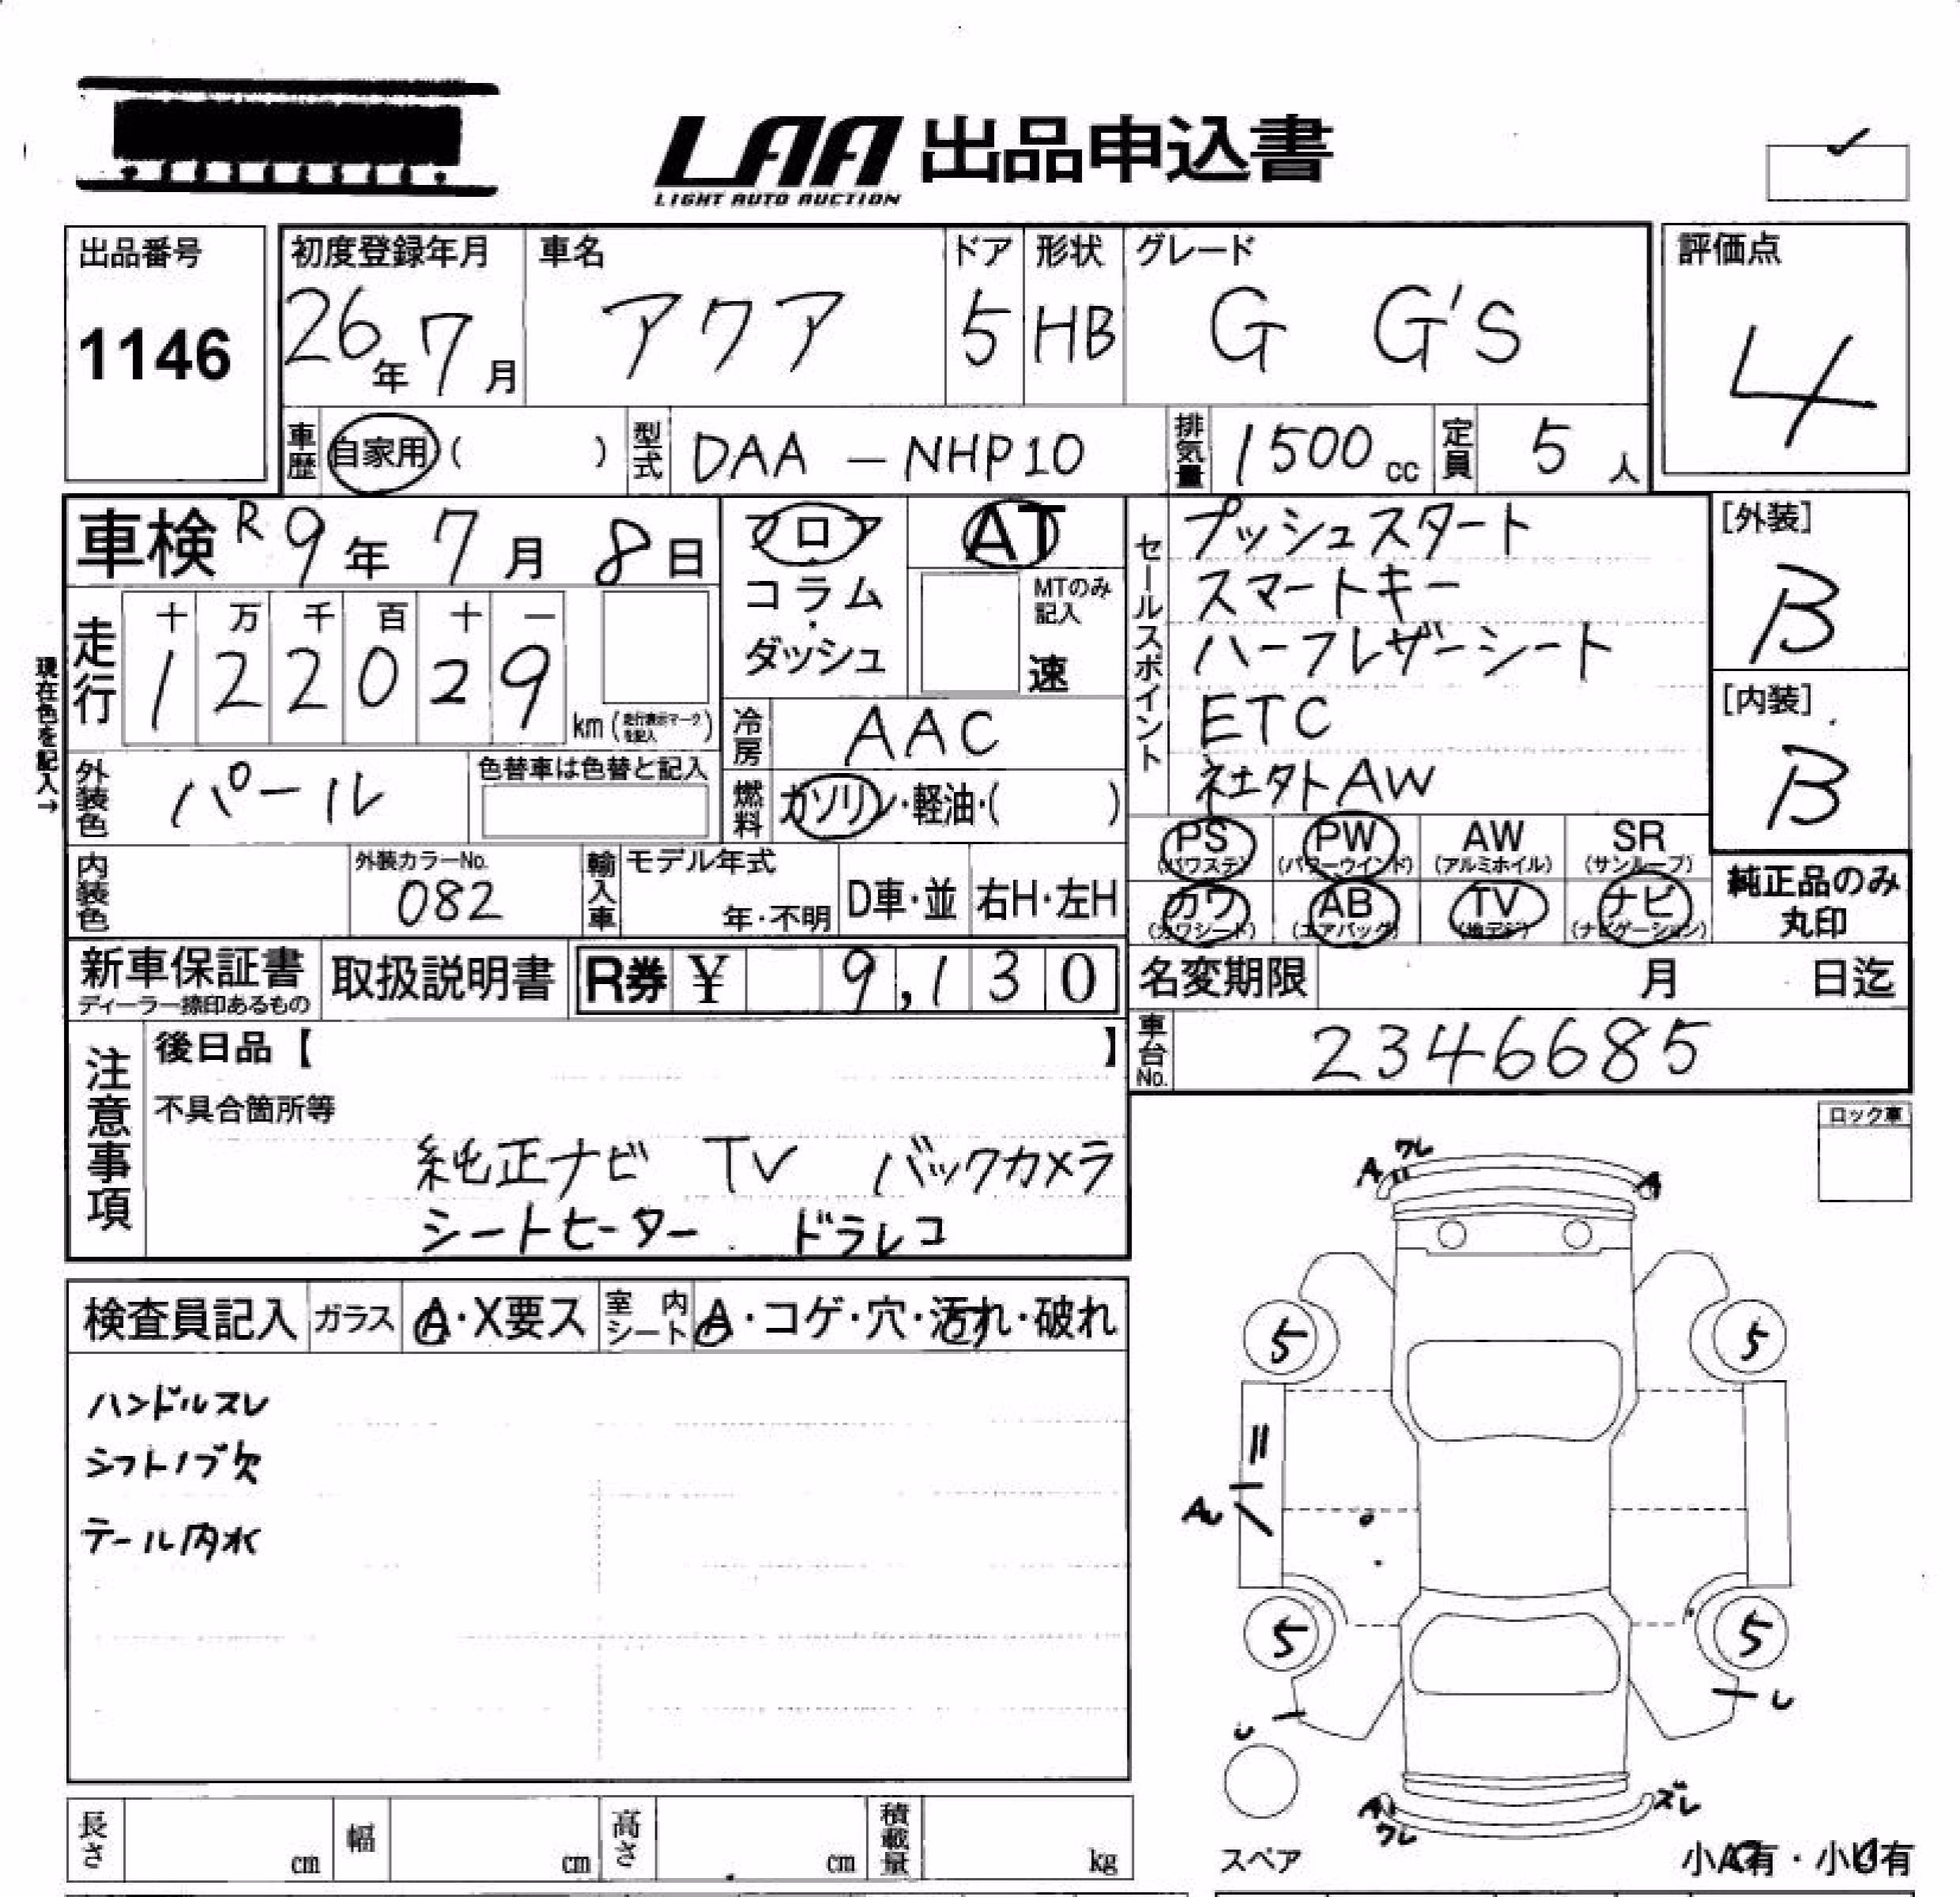 LAA 出品申込書
LIGHT AUTO AUCTION
出品番号
1146
初度登録年月
26年 7月
車名
アクア
ドア
5
形状
HB
グレード
G G'S
評価点
4
車歴
自家用( )
型式
DAA - NHP10
排気量
1500 cc
定員
5 人
車検 R 9年 7月 8日
フロア
コラム
ダッシュ
AT
MTのみ記入
速
セールスポイント
プッシュスタート
スマートキー
ハーフレザーシート
ETC
社外AW
[外装]
B
[内装]
B
現在色を記入→
走行
十 万 千 百 十 一
1 2 2 0 2 9
km (走行表示マークを記入)
冷房
AAC
外装色
パール
色替車は色替と記入
燃料
ガソリン・軽油・( )
PS (パワステ)
PW (パワーウインド)
AW (アルミホイル)
SR (サンルーフ)
カワ (カワシート)
AB (エアバッグ)
TV (地デジ)
ナビ (ナビゲーション)
純正品のみ
丸印
内装色
外装カラーNo.
082
輸入車
モデル年式
年・不明
D車・並
右H・左H
新車保証書
ディーラー捺印あるもの
取扱説明書
R券 ¥ 9,130
名変期限 月 日迄
車台No.
2346685
注意事項
後日品【 】
不具合箇所等
純正ナビ TV バックカメラ
シートヒーター ドラレコ
ロック車
検査員記入
ガラス A・X要ス
室内シート A・コゲ・穴・汚れ・破れ
ハンドルスレ
シフトノブ欠
テール内水
A ワレ A
5 5
A
5 5
U U
A ワレ ズレ
スペア
小A有・小U有
長さ cm
幅 cm
高さ cm
積載量 kg